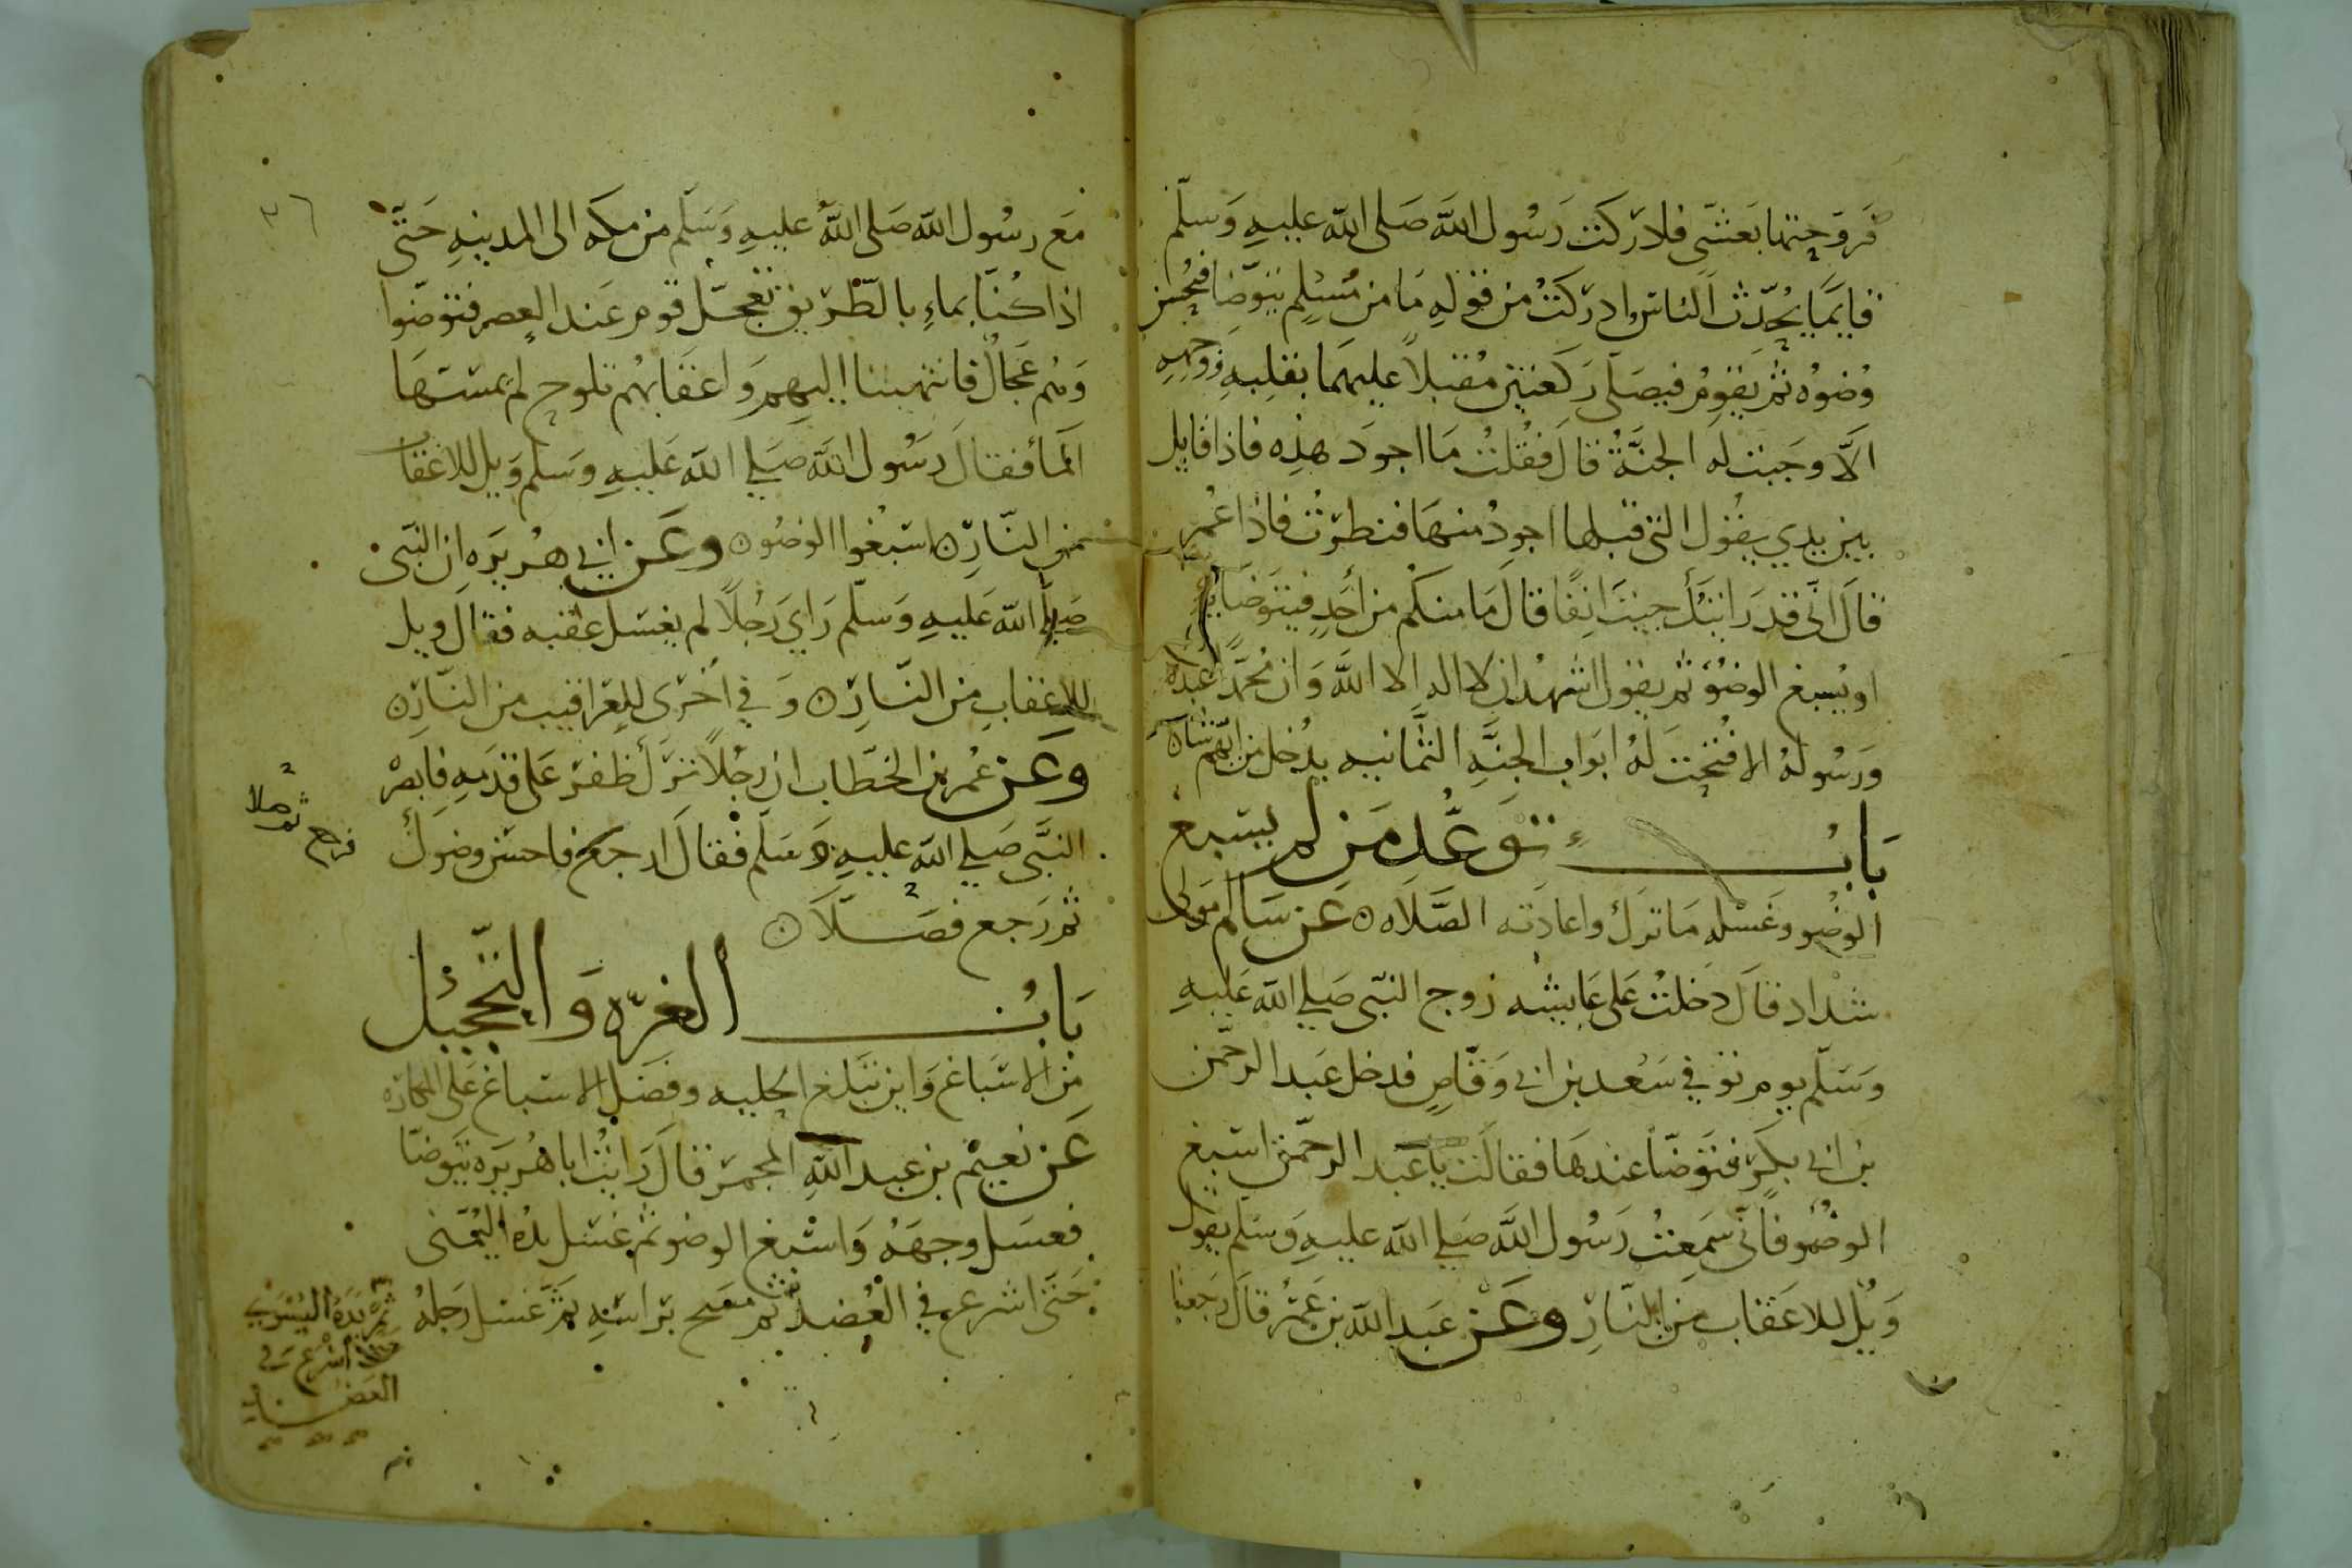 فروحتها بعشي فادركت رسول الله صلى الله عليه وسلم
قايما يحدث الناس فادركت من قوله ما من مسلم يتوضا فيحسن
وضوه ثم يقوم فيصلي ركعتين مقبلا عليهما بقلبه ووجهه
الا وجبت له الجنة قال فقلت ما اجود هذه فاذا قايل
بين يدي يقول التي قبلها اجود منها فنظرت فاذا عمر
قال اني قد رايتك جيت انفا قال ما منكم من احد فيتوضا فيبلغ
او يسبغ الوضوء ثم يقول اشهد ان لا اله الا الله وان محمدا عبده
ورسوله الا فتحت له ابواب الجنة الثمانيه يدخل من ايهم شاه
باب توعد من لم يسبغ
الوضو وغسله ما ترك واعادته الصلاه عن سالم مولى
شداد قال دخلت على عايشه زوج النبي صلي الله عليه
وسلم يوم توفي سعد بن ابي وقاص فدخل عبد الرحمن
بن ابي بكر فتوضا عندها فقالت يا عبد الرحمن اسبغ
الوضوء فاني سمعت رسول الله صلي الله عليه وسلم يقول
ويل للاعقاب من النار وعن عبد الله بن عمر قال رجعنا
٣٦
مع رسول الله صلى الله عليه وسلم من مكه الى المدينه حتى
اذا كنا بماء بالطريق تعجل قوم عند العصر فتوضوا
وهم عجال فانتهينا اليهم واعقابهم تلوح لم يمسها
الماء فقال رسول الله صلي الله عليه وسلم ويل للاعقاب
من النار اسبغوا الوضو وعن ابي هريره ان النبي
صلي الله عليه وسلم راي رجلا لم يغسل عقبه فقال ويل
للاعقاب من النار وفي اخرى للعراقيب من النار
وعن عمر بن الخطاب ان رجلا ترك ظفر على قدمه فابصر
النبي صلي الله عليه وسلم فقال ارجع فاحسن وضوك
فرجع ثم صلا
ثم رجع فصلا
باب الغره والتحجيل
من الاسباغ واين تبلغ الحليه وفضل الاسباغ على المكاره
عن نعيم بن عبد الله المجمر قال رايت ابا هريره يتوضا
فغسل وجهه واسبغ الوضو ثم غسل يده اليمنى
حتى اشرع في العضد ثم مسح براسه ثم غسل رجله
ثم يده اليسرى
حتى اشرع في
العضد